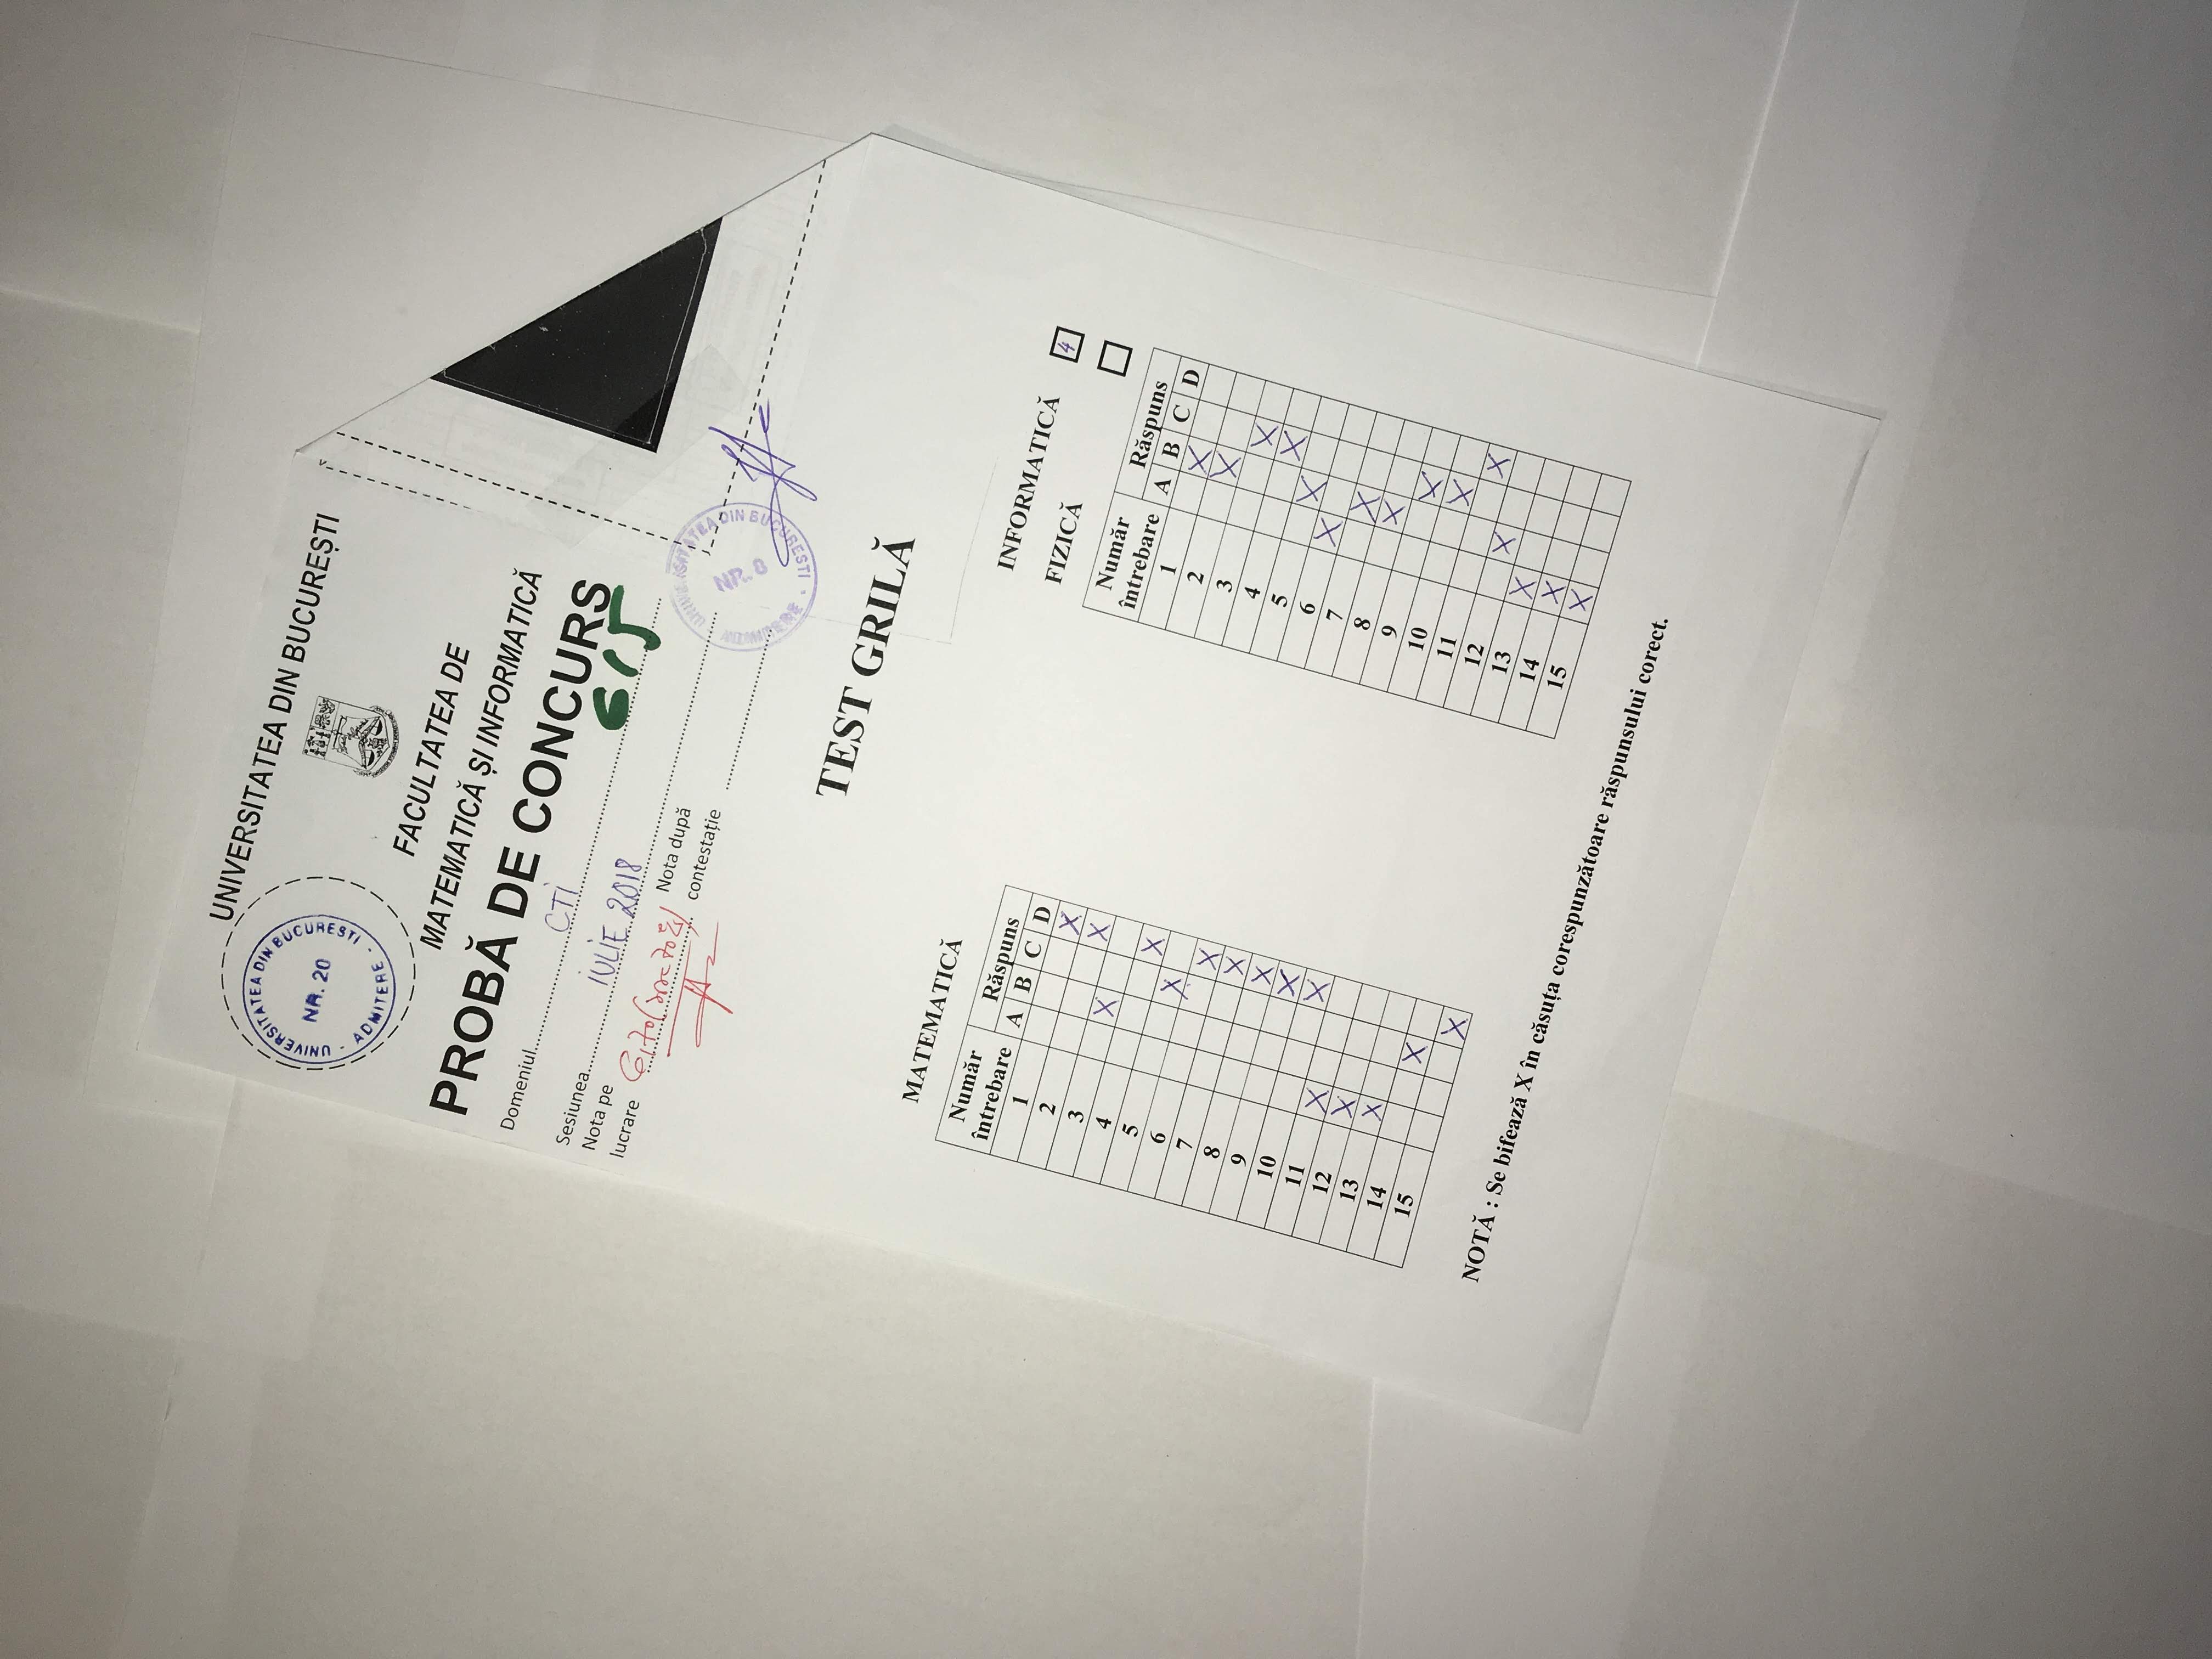 UNIVERSITATEA DIN BUCUREȘTI
UNIVERSITATEA DIN BUCURESTI
NR. 20
ADMITERE
FACULTATEA DE
MATEMATICĂ ȘI INFORMATICĂ
PROBĂ DE CONCURS
Domeniul CTI
615
Sesiunea IULIE 2018
Nota pe
lucrare 6,70
Nota după
contestație
UNIVERSITATEA DIN BUCURESTI
NR. 8
TEST GRILĂ
MATEMATICĂ
Număr
întrebare
Răspuns
A B C D
1 X
2 X
3 X
4 X
5 X
6 X
7 X
8 X
9 X
10 X
11 X
12 X
13 X
14 X
15 X
INFORMATICĂ 4
FIZICĂ
Număr
întrebare
Răspuns
A B C D
1 X
2 X
3 X
4 X
5 X
6 X
7 X
8 X
9 X
10 X
11 X
12 X
13 X
14 X
15 X
NOTĂ : Se bifează X în căsuța corespunzătoare răspunsului corect.